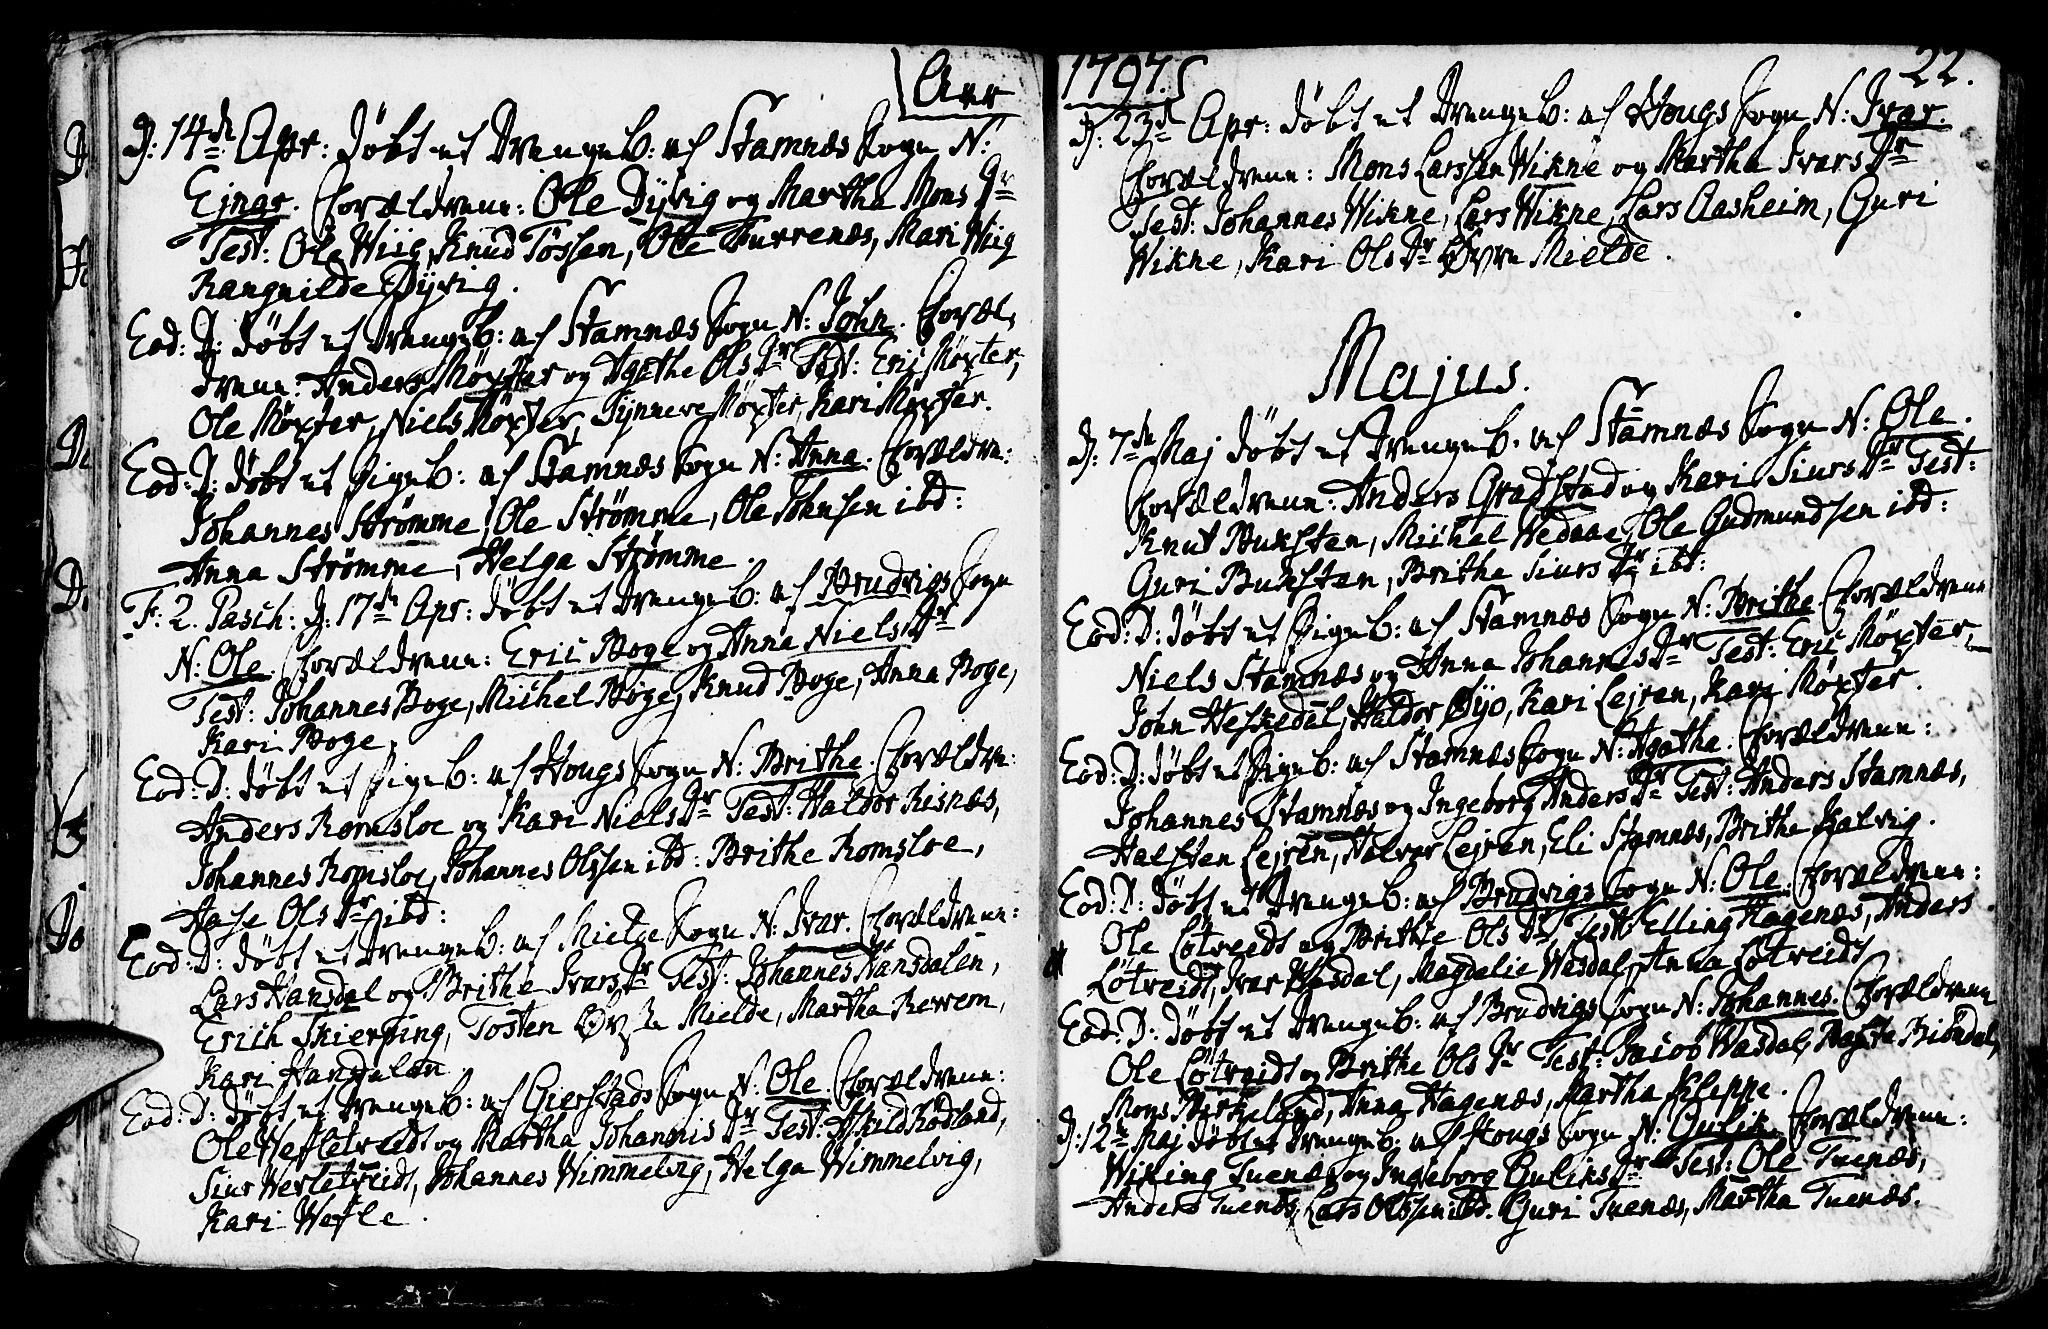 Ann
D: 14de Apr: døbt et Drengeb: af Stamnæs Sogn N:
Ejnar. Forældrene: Ole Dyvig og Martha Mons Dr
Test: Ole Wiig, Knud Tössen, Ole Furrenæs, Mari Wiig
Rangnilde Dyvig.
Eod: D: døbt et Drengeb: af Stamnæs Sogn N: John. Foræl,
drene: Anders Möxter og Agathe Ols Dr Test: Eric Möxter,
Ole Möxter, Niels Möxter, Synneve Möxter, Kari Möxter.
Eod: D: døbt et Pigeb: af Stamnæs Sogn N: Anna. Forældre:
Johannes Strømme, Ole Strømme, Ole Johnsen ibd:
Anna Strømme, Helga Strømme.
F: 2. Pasch: D: 17de Apr: döbt et Drengeb: af Brudvigs Sogn
N: Ole. Forældrene: Eric Boge og Anna Niels Dr
Test: Johannes Boge, Michel Boge, Knud Boge, Anna Boge,
Kari Boge,
Eod: D: døbt et Pigeb: af Hougs Sogn N: Brithe. Forældre:
Anders Romsloe og Kari Niels Dr Test: Haldor Risnæs,
Johannes Romsloe, Johannes Olssen ibd: Brithe Romsloe,
Aase Ols Dr ibd:
Eod: D: døbt et Drengeb: af Mielde Sogn N: Ivar. Forældrene:
Lars Hansdal og Brithe Ivars Dr Test: Johannes Hansdalen,
Erich Skierping, Tosten Øvre Mielde, Martha Revem,
Kari Hansdalen
Eod: D: döbt et Drengeb: af Gierstads Sogn N: Ole Forældrene:
Ole Wefletveidt og Martha Johannis Dr Test: Askild Rödland,
Siur Wefletveidt, Johannes Wimmelvig, Helga Wimmelvig,
Kari Wefle.
1797.
22.
D: 23de Apr: døbt et Drengeb: af Hougs Sogn N: Ivar.
Forældrene: Mons Larssen Wikne og Martha Ivars Dr
Test: Johannes Wikne, Lars Wikne, Lars Aasheim, Guri
Wikne, Kari Ols Dr Øvre Mielde.
Majus.
D: 7de Maj døbt et Drengeb. af Stamnæs Sogn N: Ole.
Forældrene: Anders Gradstad og Kari Siurs Dr Test:
Knut Buksten, Michel Wedaae, Ole Gudmundsen ibd:
Guri Buksten, Brithe Siurs Dr ibd:
Eod: D: døbt et Pigeb: af Stamnæs Sogn N: Brithe Forældrene
Niels Stamnæs og Anna Johannis Dr Test: Eric Möxter,
John Heskedal, Haldor Øyo, Kari Lejren, Kari Möxter.
Eod: D: døbt et Pigeb: af Stamnæs Sogn N: Agatha. Forældrene:
Johannes Stamnæs og Ingeborg Anders Dr Test: Anders Stamnæs,
Halsten Lejren, Halvor Lejren, Eli Stamnæs, Brithe Kalvig.
Eod: D: døbt et Drengeb: af Brudvigs Sogn N: Ole. Forældrene:
Ole Løtveidt og Brithe Ols Dr Test: Elling Hagenæs, Anders
Løtveidt, Ivar Wasdal, Magdelie Wasdal, Anna Løtveidt
Eod: D: døbt et Drengeb: af Brudvigs Sogn N: Johannes. Forældrene
Ole Løtveidt og Brithe Ols Dr Test: Jacob Wasdal, Biöndal,
Mons Birkeland, Anna Hagenæs, Martha Kleppe.
D: 12te Maj døbt et Drengeb: af Hougs Sogn N: Gulik Forældrene:
Wiking Tuenæs og Ingeborg Guliks Dr Test: Ole Tuenæs,
Anders Tuenæs, Lars Olssen ibd. Guri Tuenæs, Martha Tuenæs.